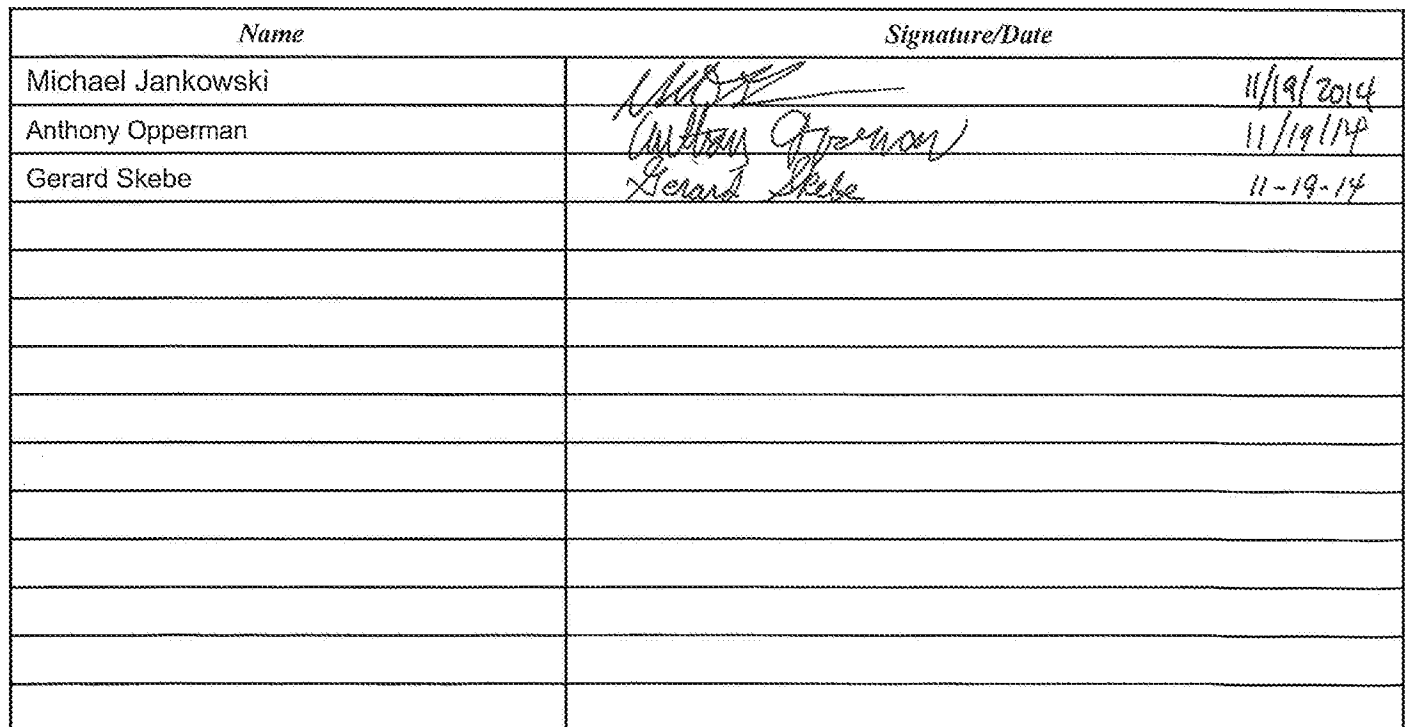 Name Signature/Date
Michael Jankowski 11/19/2014
Anthony Opperman Anthony Opperman 11/19/14
Gerard Skebe Gerard Skebe 11-19-14